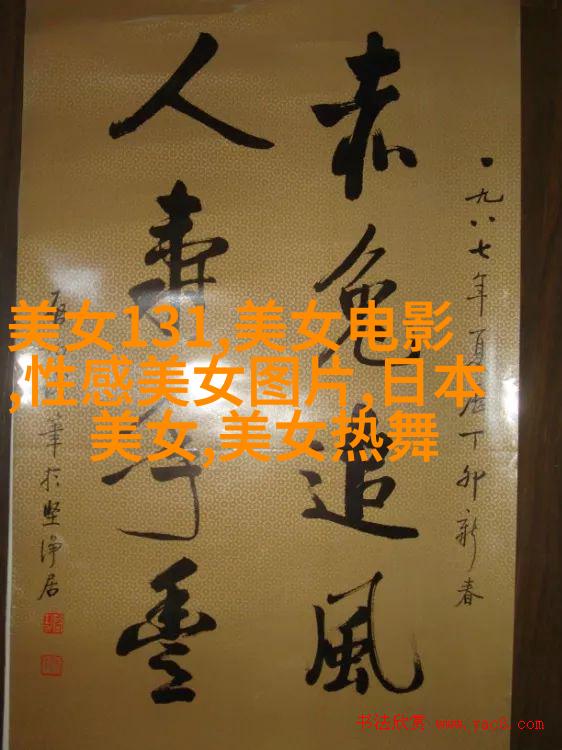 美女131,美女电影
,性感美女图片,日本
美女,美女热舞
一九八七年夏历丁卯新春
赤兔追風
人壽年豐
筆於坚净居
书法欣赏 www.yac8.com